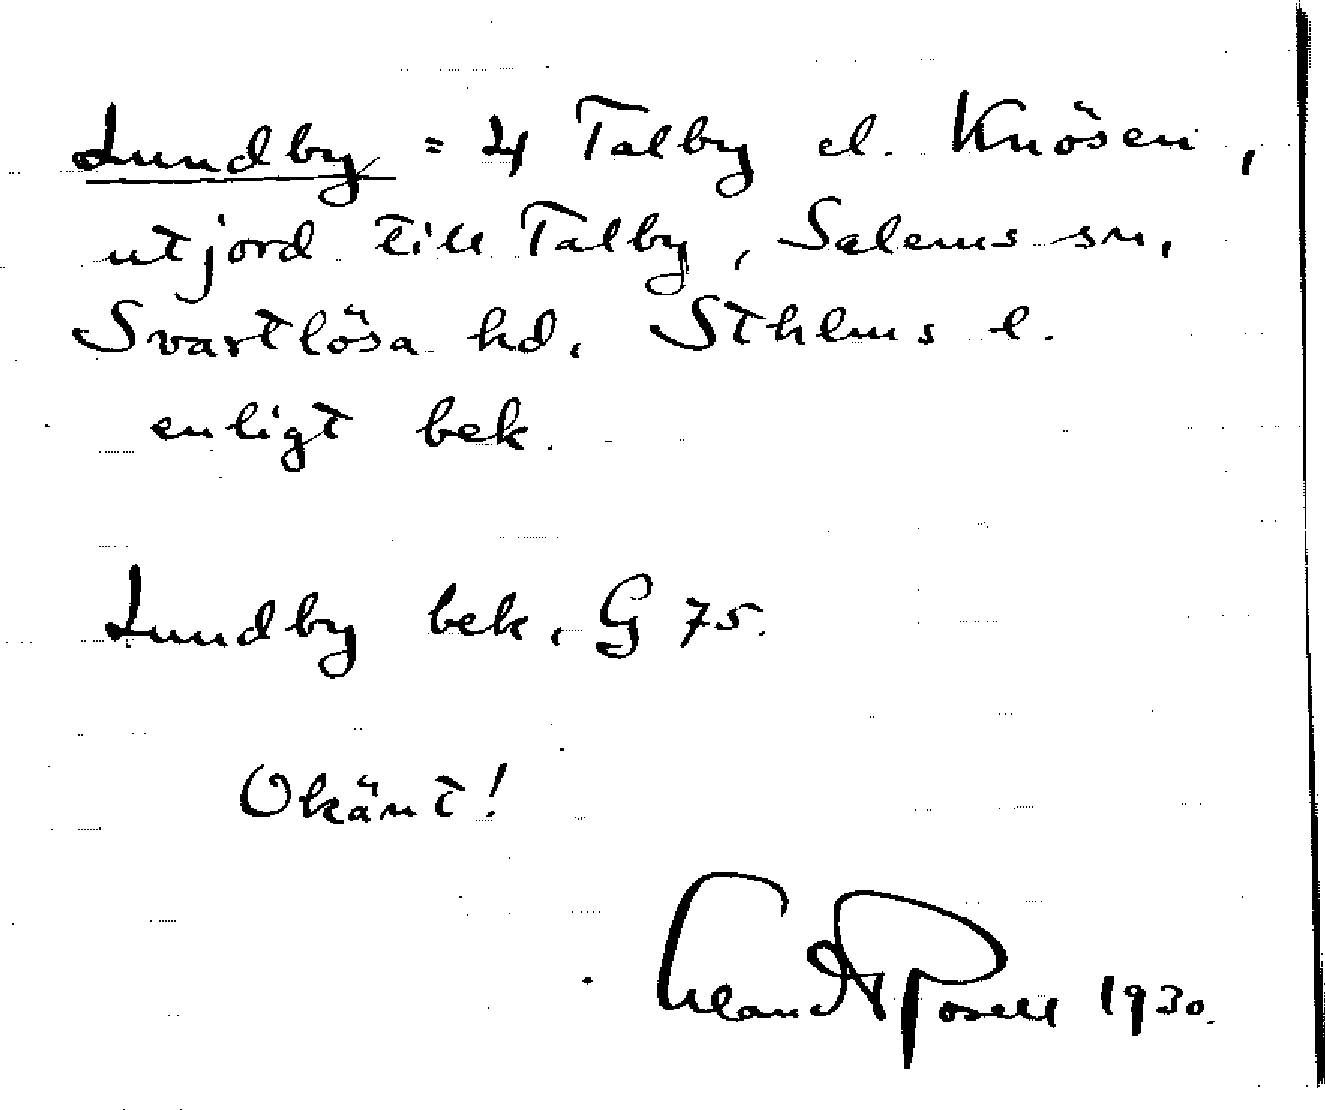 Lundby = 4 Talby el. Knösen,
utjord till Talby, Salems sn,
Svartlösa hd. Sthlms l.
enligt bek.
Lundby bek. G 75.
Okänt!
Erland Rosell 1930.